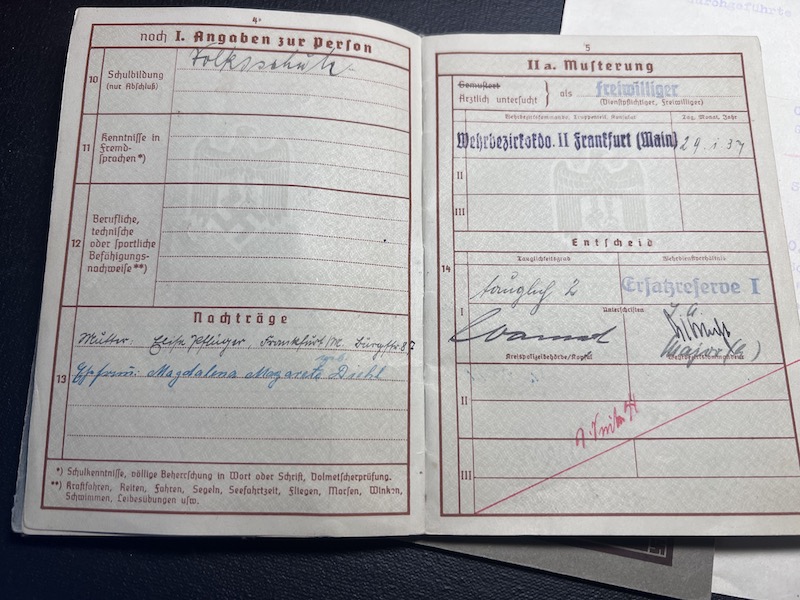 durchgeführte
4
noch I. Angaben zur Person
10 Schulbildung
(nur Abschluß)
Volksschule
11 Kenntnisse in
Fremd-
sprachen*)
12 Berufliche,
technische
oder sportliche
Befähigungs-
nachweise**)
Nachträge
13
Mutter: Elise Pflüger, Frankfurt/M. Burgstr. 87
Ehefrau: Magdalena Margarete geb. Diehl
*) Schulkenntnisse, völlige Beherrschung in Wort oder Schrift, Dolmetscherprüfung.
**) Kraftfahren, Reiten, Fahren, Segeln, Seefahrtzeit, Fliegen, Morsen, Winken,
Schwimmen, Leibesübungen usw.
5
IIa. Musterung
Gemustert
Ärztlich untersucht } als freiwilliger
(Dienstpflichtiger, Freiwilliger)
Wehrbezirkskommando, Truppenteil, Konsulat
Tag, Monat, Jahr
Wehrbezirkskdo. II Frankfurt (Main) 29. 1. 37
II
III
Entscheid
14
Tauglichkeitsgrad
Wehrdienstverhältnis
I
tauglich 2
Ersatzreserve I
Unterschriften
Major (E)
Kreispolizeibehörde/Konsul
II
III